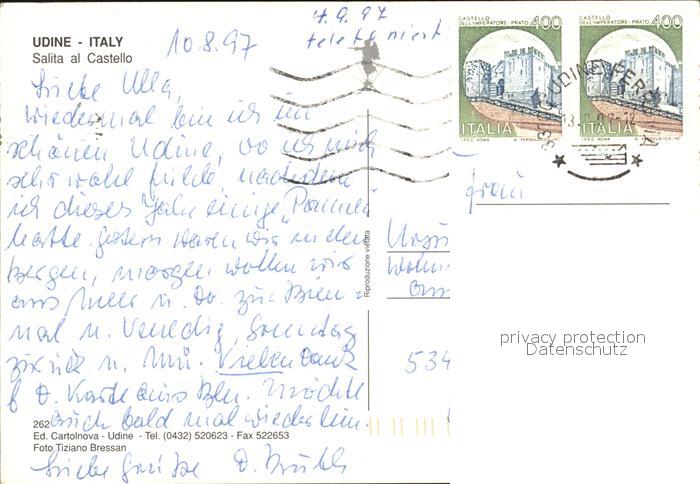 4.9.97
10.8.97
UDINE - ITALY
Salita al Castello
CASTELLO
DELL'IMPERATORE - PRATO 400
CASTELLO
DELL'IMPERATORE - PRATO 400
ITALIA
ITALIA
33100 UDINE FERR
Frau
Liebe Ulla,
wiedermal bin ich im
schönen Udine, wo ich mich
sehr wohl fühle, nachdem
ich dieses Jahr einige "Pannen"
hatte. Gestern waren wir in den
Bergen, morgen wollen wir
ans Meer u. Do. zur Bien-
nal n. Venedig, Sonntag
zurück n. Mü. Vielen Dank
f. D. Karte
Möchte
auch bald mal wieder hin.
Liebe Grüsse D.
534
Riproduzione vietata
262
Ed. Cartolnova - Udine - Tel. (0432) 520623 - Fax 522653
Foto Tiziano Bressan
privacy protection
Datenschutz